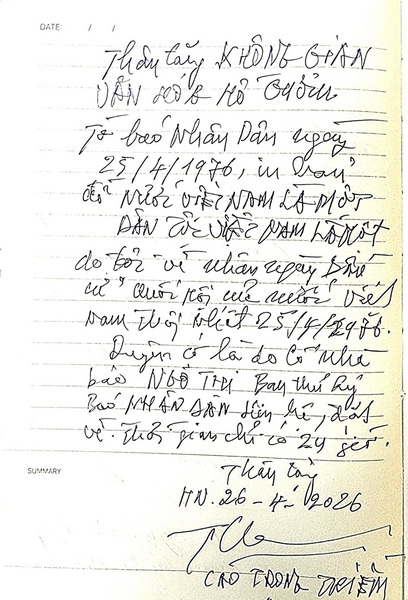 DATE: / /
Thân tặng KHÔNG GIAN
VĂN HÓA HỒ GƯƠM
Tờ báo Nhân Dân ngày
25/4/1976, in tranh
cổ NƯỚC VIỆT NAM LÀ MỘT
DÂN TỘC VIỆT NAM LÀ MỘT
do tôi vẽ nhân ngày bầu
cử Quốc hội cả nước Việt
Nam thống nhất 25/4/1976.
Duyên cớ là do cố nhà
báo NGÔ THI Ban thư ký
Báo NHÂN DÂN liên hệ, đặt
vẽ. Thời gian chỉ có 24 giờ.
SUMMARY
Thân tặng
HN. 26-4-2026
CAO TRỌNG THIỀM